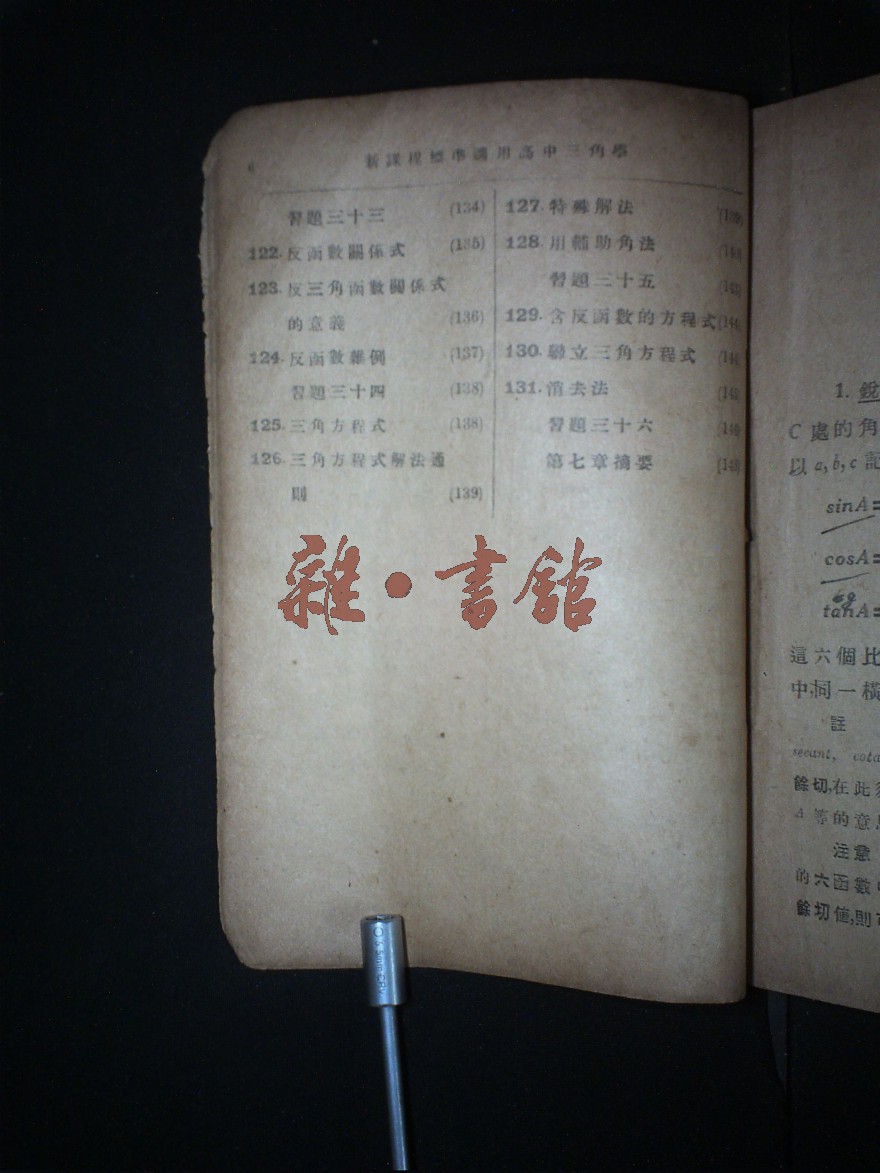 6
新課程標準適用高中三角學
習題三十三 (134)
122. 反函數關係式 (135)
123. 反三角函數關係式
的意義 (136)
124. 反函數雜例 (137)
習題三十四 (138)
125. 三角方程式 (138)
126. 三角方程式解法通
則 (139)
127. 特殊解法 (139)
128. 用輔助角法
習題三十五 (143)
129. 含反函數的方程式 (144)
130. 聯立三角方程式
131. 消去法
習題三十六
第七章摘要
雜·書館
1. 銳
C 處的角
以 a, b, c 記
sinA=
cosA=
tanA=
這六個比
中,同一橫
註
secant, cota
餘切,在此
A 等的意
注意
的六函數
餘切值,則